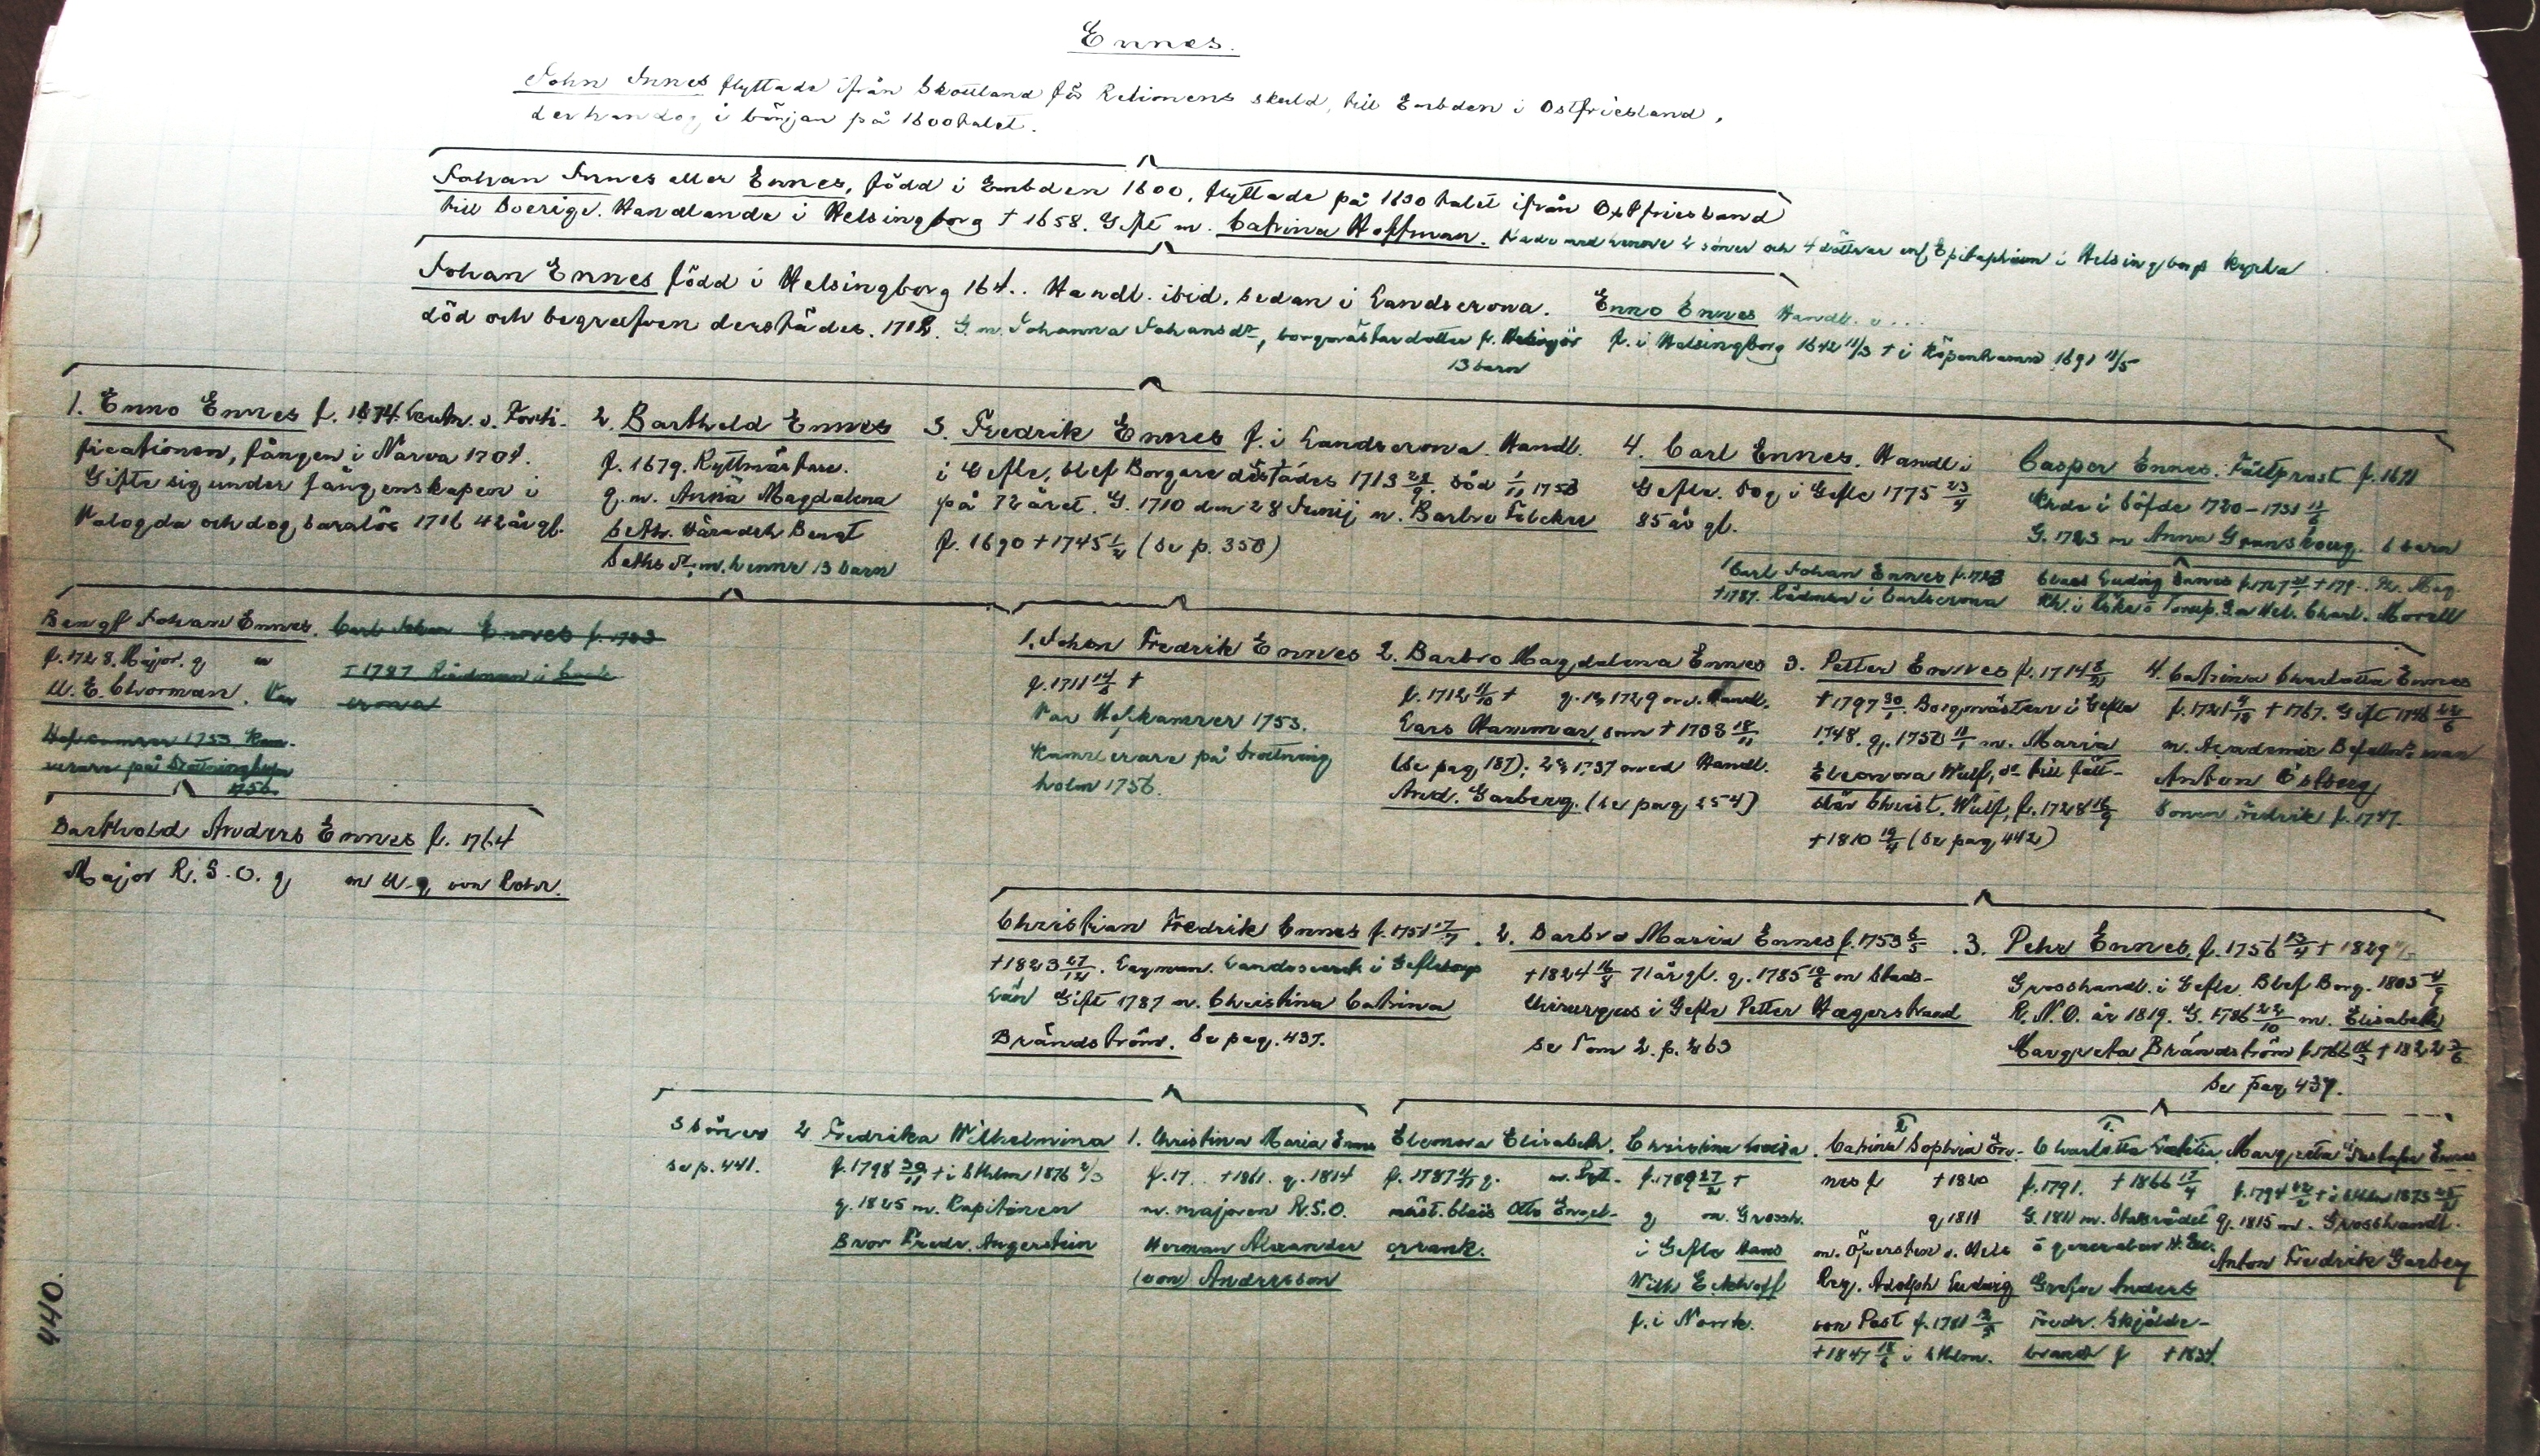 Ennes.
John Innes flyttade ifrån Skottland för Relionens skuld, till Embden i Ostfriesland,
der han dog i början på 1600 talet.
Johan Innes eller Ennes, född i Embden 1600, flyttade på 1630 talet ifrån Ostfriesland
till Sverige. Handlande i Helsingborg † 1658. Gift m. Catrina Hoffman. Hade med henne 2 söner och 4 döttrar enl. Epitaphium i Helsingborgs kyrka
Johan Ennes född i Helsingborg 164.. Handl. ibid. sedan i Landscrona.
död och begrafven derstädes. 1712. G. m. Johanna Johansdr, borgmästardotter fr. Helsingör
13 barn
Enno Ennes Handl. i ...
f. i Helsingborg 1642 11/3 † i Köpenhamn 1691 11/5
1. Enno Ennes f. 1674. Leutn. v. Forti-
ficationen, fången i Narva 1704.
Gifte sig under fångenskapen i
Vologda och dog barnlös 1716 42 år gl.
2. Barthold Ennes
f. 1679. Ryttmästare.
g. m. Anna Magdalena
Seth. Häradsh Bengt
Seths dr, m. henne 13 barn
3. Fredrik Ennes f. i Landscrona. Handl.
i Gefle, blef Borgare dåstädes 1713 28/9. död 1/11 1753
på 72 året. G. 1710 den 28 Junij m. Barbro
f. 1690 † 1745 1/2 (Se p. 358)
4. Carl Ennes. Handl i
Gefle. Dog i Gefle 1775 23/4
85 år gl.
Casper Ennes. Fältprost f. 1691
Khde i Söfde 1720-1731 13/6
G. 1723 m Anna Gr 6 barn
Carl Johan Ennes f. 1723
† 1787. Rådman i Carlscrona
Claes Ludvig Ennes f. 1727 † 179. Fil. Mag.
Kh. i Torup. G. m Hel. Charl. Morell
Bengt Johan Ennes.
f. 1728. Major. g m
U. E. Chorman. Var
Hofkamrer 1753 Kam-
rerare på Drottningholm
1756.
Carl Johan Ennes f. 1723
† 1787 Rådman i Carls
crona
1. Johan Fredrik Ennes
f. 1711 14/6 †
Var Hofkamrer 1753.
Kamrerare på Drottning
holm 1756.
2. Barbro Magdalena Ennes
f. 1712 11/10 † g. 1o 1729 m. Handl.
Lars Hammar, som † 1733 18/11
(Se pag. 187); 2o 1737 med Handl.
And. Garberg. (Se pag. 254)
3. Petter Ennes f. 1714 8/21
† 1797 30/1. Borgmästare i Gefle
1748. g. 1750 11/1 m. Maria
Eleonora Wulf, dr till Fält-
skär Christ. Wulf, f. 1728 16/9
† 1810 19/4 (Se pag. 442)
4. Catrina Charlotta Ennes
f. 1721 9/12 † 1767. Gift 1746 22/6
m. Academie Befallns man
Anton Östberg
Sonen Fredrik f. 1747.
Barthold Anders Ennes f. 1764
Major R. S. O. g m U. g von Rohr.
Christian Fredrik Ennes f. 1751 17/7.
† 1823 27/12. Lagman. Landssecret i Gefleborgs
län Gift 1787 m. Christina Catrina
Brändström. Se pag. 437.
2. Barbro Maria Ennes f. 1753 6/5
† 1824 16/8 71 år gl. g. 1785 10/8 m Stads-
chirurgus i Gefle Petter Hagerstrand
Se Tom 2. p. 263
3. Pehr Ennes, f. 1756 13/4 † 1829
Grosshandl. i Gefle. Blef Borg. 1803 4/9
R. N. O. år 1819. G. 1786 22/10 m. Elisabeth
Margreta Brändström f. 1766 16/3 † 1822 3/6
Se pag. 437.
3 söner
se p. 441.
2 Fredrika Wilhelmina
f. 1798 30/11 † i Sthlm 1876 2/3
g. 1825 m. Kapitenen
Bror Fredr. Angerstein
1. Christina Maria Ennes
f. 17.. † 1861. g. 1814
m. majoren R. S. O.
Herman Alexander
(von) Andersson
Eleonora Elisabeth.
f. 1787 g. m. Ryt-
mäst. Otto Engel-
crank.
Christina Lovisa
f. 1789 27/2 †
g m. Grossh.
i Gefle Hans
Wilh Eckhoff
f. i Norrk.
2
Catrina Sophia En-
nes f † 1820
g 1811
m. Öfversten v. Hels
Reg. Adolph Ludvig
von Post f. 1781
† 1847 18/6 i Sthlm.
1.
Charlotta
f. 1791. † 1866 17/4
G. 1811 m. Statsrådet
o generalen H. Exc.
Grefve Anders
Fredr. Skjölde-
brand f † 1834.
Margreta Gustafva Ennes
f. 1794 † i Sthlm 1873
g. 1815 m. Grosshandl.
Anton Fredrik Garberg
440.